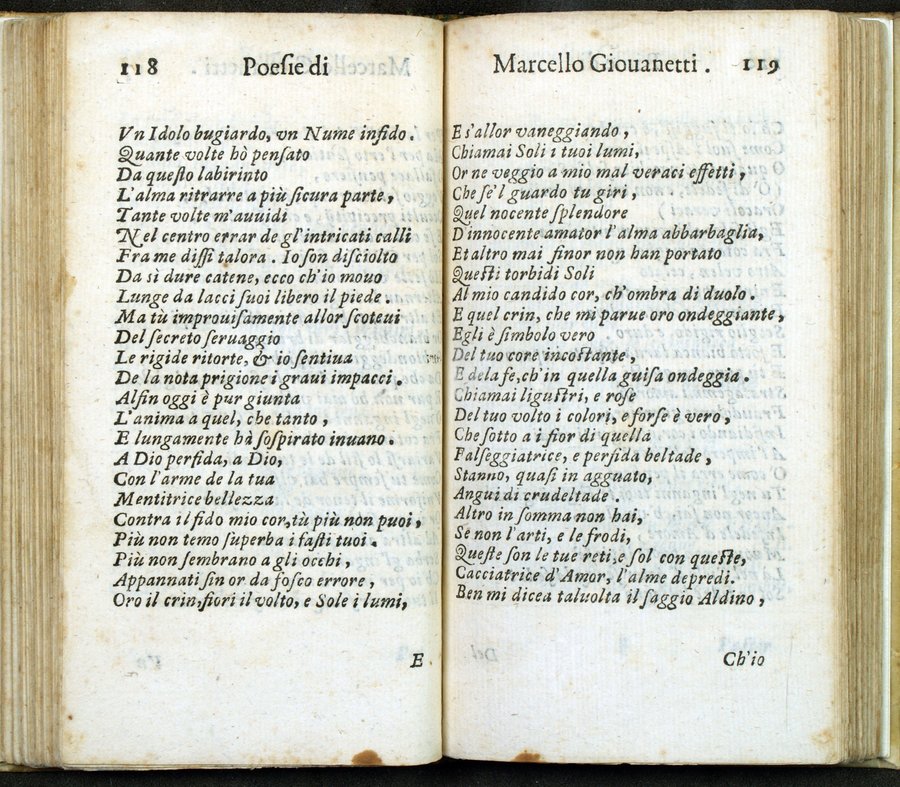 118 Poesie di
Vn Idolo bugiardo, vn Nume infido.
Quante volte hò pensato
Da questo labirinto
L'alma ritrarre a più sicura parte,
Tante volte m'auuidi
Nel centro errar de gl'intricati calli
Fra me dissi talora. Io son disciolto
Da sì dure catene, ecco ch'io mouo
Lunge da lacci suoi libero il piede.
Ma tù improuisamente allor scoteui
Del secreto seruaggio
Le rigide ritorte, & io sentiua
De la nota prigione i graui impacci.
Alfin oggi è pur giunta
L'anima a quel, che tanto,
E lungamente hà sospirato inuano.
A Dio perfida, a Dio,
Con l'arme de la tua
Mentitrice bellezza
Contra il fido mio cor, tù più non puoi,
Più non temo superba i fasti tuoi.
Più non sembrano a gli occhi,
Appannati sin or da fosco errore,
Oro il crin, fiori il volto, e Sole i lumi,
E
Marcello Giouanetti. 119
E s'allor vaneggiando,
Chiamai Soli i tuoi lumi,
Or ne veggio a mio mal veraci effetti,
Che se'l guardo tu giri,
Quel nocente splendore
D'innocente amator l'alma abbarbaglia,
Et altro mai finor non han portato
Questi torbidi Soli
Al mio candido cor, ch'ombra di duolo.
E quel crin, che mi parue oro ondeggiante,
Egli è simbolo vero
Del tuo core incostante,
E de la fe, ch'in quella guisa ondeggia.
Chiamai ligustri, e rose
Del tuo volto i colori, e forse è vero,
Che sotto a i fior di quella
Falseggiatrice, e perfida beltade,
Stanno, quasi in agguato,
Angui di crudeltade.
Altro in somma non hai,
Se non l'arti, e le frodi,
Queste son le tue reti, e sol con queste,
Cacciatrice d'Amor, l'alme depredi.
Ben mi dicea taluolta il saggio Aldino,
Ch'io